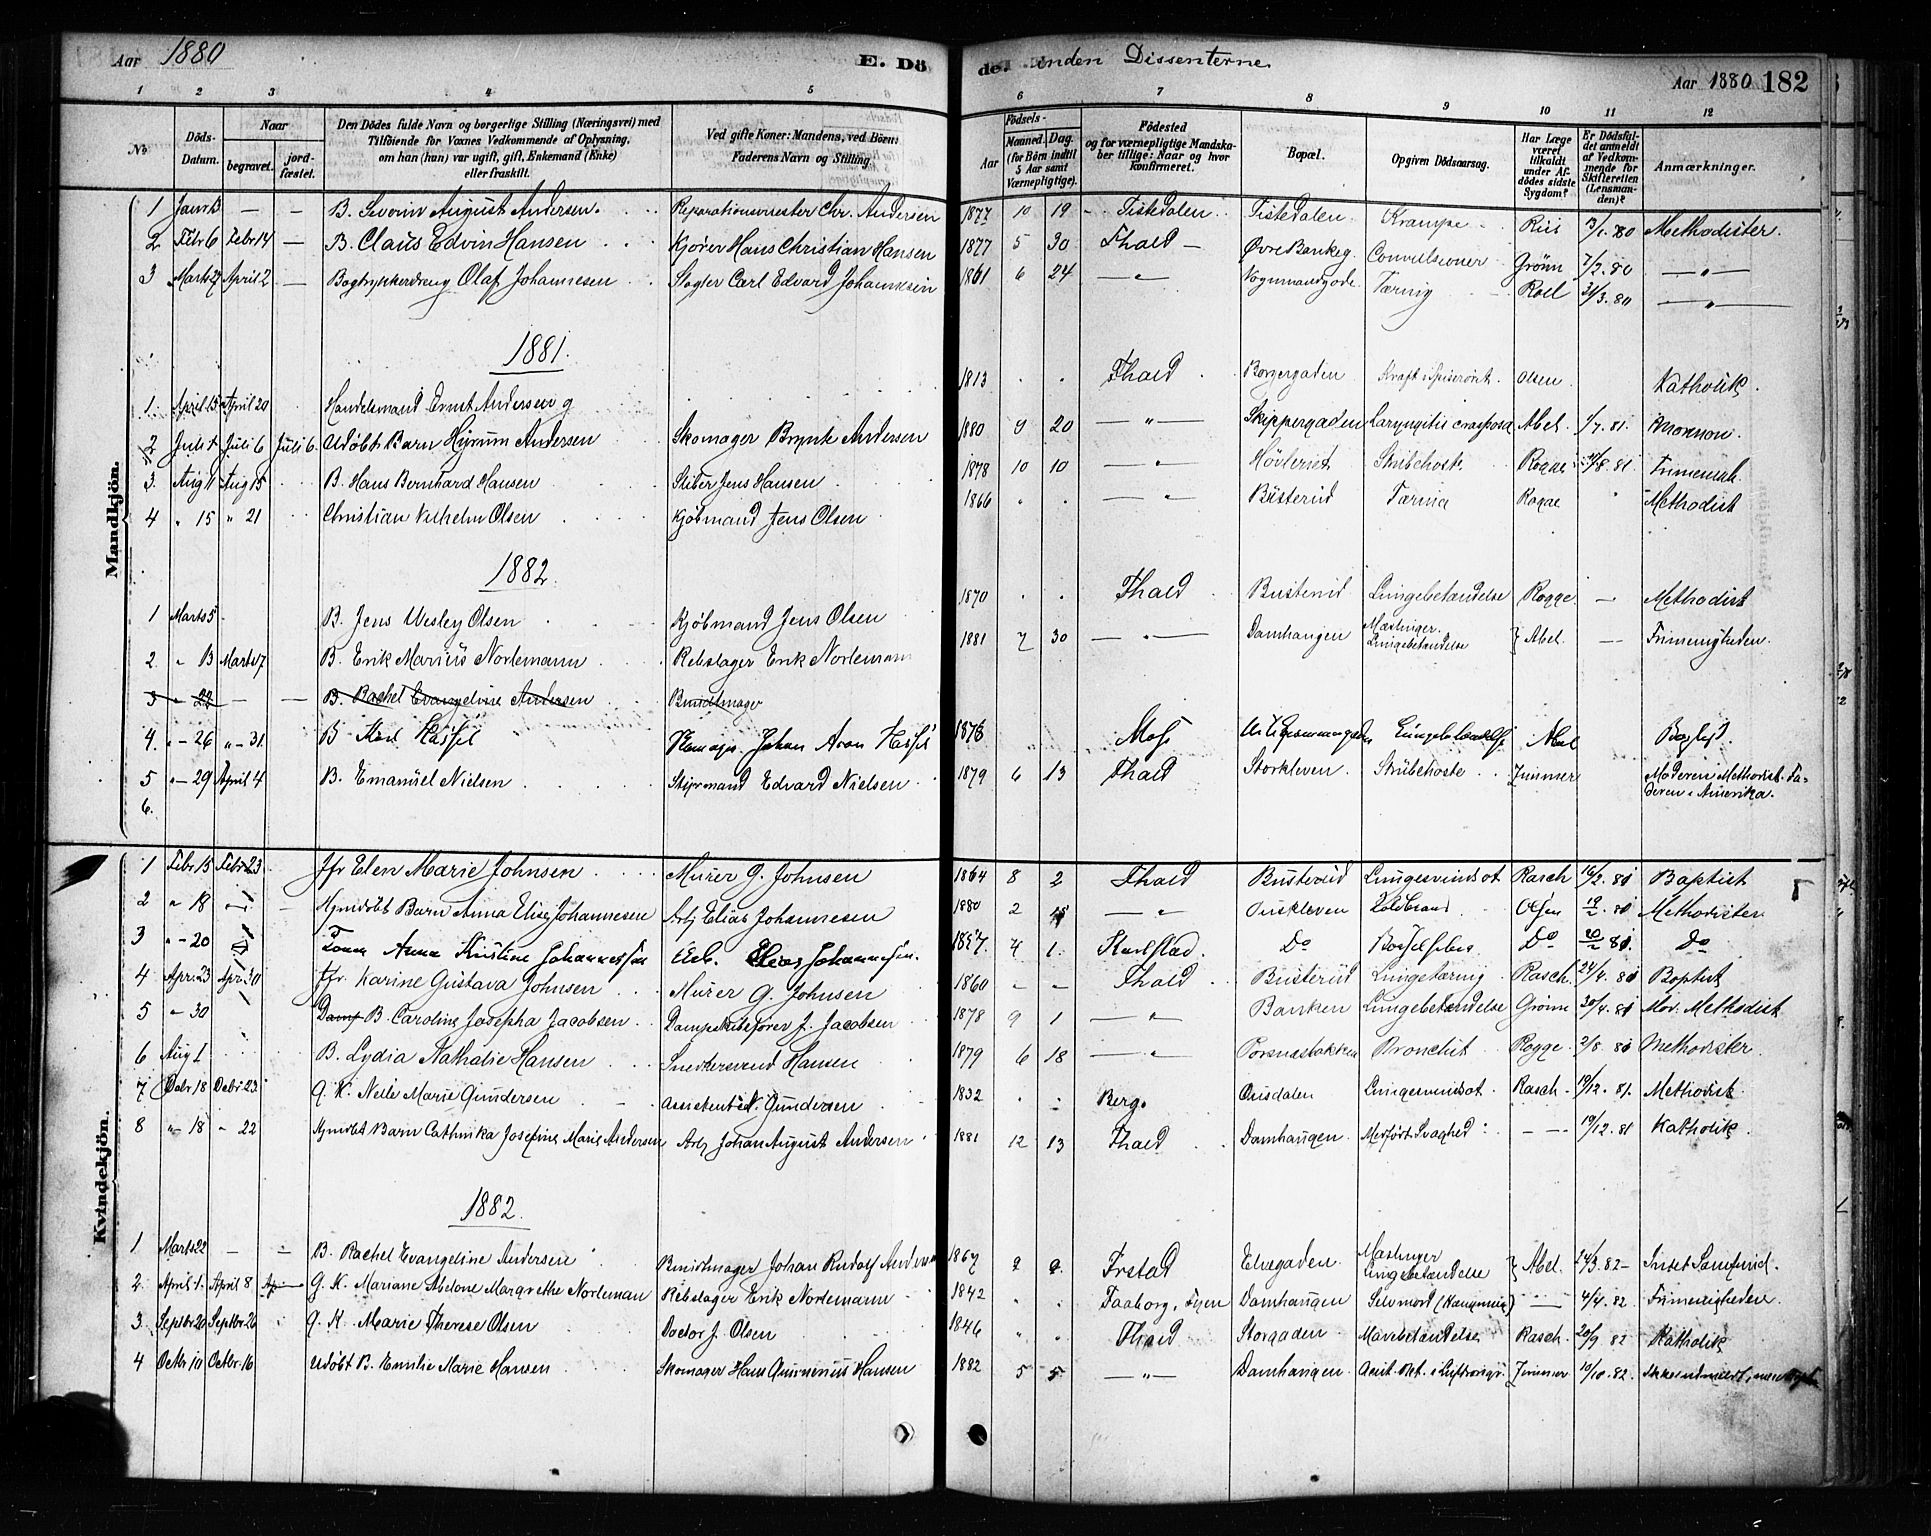 Aar 1880
E. Dö
de. inden Dissenterne.
Aar 1880 182
1 2 3 4 5 6 7 8 9 10 11 12
No
Döds-Datum.
Naar
begravet.
jord-fæstet.
Den Dödes fulde Navn og borgerlige Stilling (Næringsvei) med
Tilföiende for Voxnes Vedkommende af Oplysning,
om han (hun) var ugift, gift, Enkemand (Enke)
eller fraskilt.
Ved gifte Koner: Mandens, ved Börn:
Faderens Navn og Stilling.
Födsels-
Aar
Maaned. Dag.
(for Börn indtil
5 Aar samt
Værnepligtige).
Födested
og for værnepligtige Mandska-
ber tillige: Naar og hvor
konfirmeret.
Bopæl.
Opgiven Dödsaarsag.
Har Læge
været
tilkaldt
under Af-
dödes sidste
Sygdom?
Er Dödsfal-
det anmeldt
af Vedkom-
mende for
Skifteretten
(Lensman-
den)?
Anmærkninger.
Mandkjön.
1 Janr 13 — — B. Severin August Andersen. Reparationsmester Chr. Andersen 1877 10 19 Tistedalen Tistedalen Krampe Riis 13/1.80 Methodister.
2 Febr 6 Febr 14 — B. Claus Edvin Hansen Kjører Hans Christian Hansen 1877 5 30 Fhald — Øvre Bankeg. Convulsioner Grønn 7/2.80 — " —
3 Marts 27 April 2 — Bogtrykkerdreng Olaf Johannesen Slagter Carl Edvard Johannesen 1861 6 24 — " — Vognmandgade. Tæring Roll 31/3.80 — " —
1881.
1. April 15 April 20 Handelsmand Ernst Andersen g 1813 Fhald Borgergaden Kræft i Spiserøret. Olsen Katholik
2 Juli 1 Juli 6 Juli 6. Udøbt Barn Hyrum Andersen Skomager Brynte Andersen 1880 9 20 — " — Skippergaden Laryngitis crouposa Abel. 1/7.81. Mormon.
3. Aug 11 Aug 15 B. Hans Bernhard Hansen Sliber Jens Hansen 1878 10 10 — " — Høvleriet Strubehoste Rogge 11/8.81. Frimenigh.
4 " 15 " 21 Christian Vilhelm Olsen Kjøbmand Jens Olsen 1866 — " — Busterud Tæring Rogge Methodist
1882.
1 Marts 5 B. Jens Wesley Olsen Kjøbmand Jens Olsen 1870 Fhald Busterud Lungebetændelse Rogge. — Methodist
2. " 13 Marts 17 B. Erik Marius Norlemann Rebslager Erik Norlemann 1881 7 30 — " — Damhaugen Mæslinger. Lungebetændelse } Abel. — Frimenigheden.
3 " 22 — — B. Rachel Evangeline Andersen Bundtmager
4. " — 26 " — 31. B Karl Hassel Skomager Johan Aron Hassel 1876 Moss Lungebetændelse Abel
5 " — 29 April 4 B. Emanuel Nielsen Styrmand Edvard Nielsen 1879 6 13 Fhald Storkleven. Strubehoste Zimmer Moderen Methodist. Fa-
deren i Amerika.
6.
Kvindekjön.
1 Febr 15 Febr 23 Jfr Elen Marie Johnsen Murer G. Johnsen 1864 8 2 Fhald Busterud Lungesvindsot Rasch 16/2.81 Baptist
2 " 18 Hjemdøbt Barn Anna Elise Johannesen Arb Elias Johannesen 1880 2 — " — Ouskleven Koldbrand Olsen 19/2.81 Methodister
3 " — 20 Anna Kristine Johannessen Elias Johannesen. 1857. 4 1. Karlstad Do Do 20/2 81. Do
4 April 23 April 30 Jfr. Karine Gustava Johnsen Murer G. Johnsen 1860 — — Fhald Busterud Lungetæring Rasch. 24/4.81 Baptist
5 " 30 Damp B. Caroline Josepha Jacobsen Dampskibsfører J. Jacobsen 1878 9 1 — " — Banken Lungebetændelse Grønn 30/4.81 Mor. Methodist
6 Aug 1 B. Lydia Nathalie Hansen Snedkersvend Hansen 1879 6 18 — " — Porsnesbakken Bronchit Rogge 2/8.81 Methodister
7 Debr 18 Debr 23 G. K. Nelle Marie Gundersen Assistent N. Gundersen 1832 Berg. Ousdalen Lungesvindsot. Rasch 19/12.81. Methodist
8 " 18 " 22 Hjemdøbt Barn Cathinka Josefine Marie Andersen Arb Johan August Andersen 1881 12 13 Fhald Damhaugen Medfødt Svaghed — — 19/12.81 Katholik
1882.
1 Marts 22 — B. Rachel Evangeline Andersen Bundtmager Johan Rudolf Andersen 1867 9 9. Frstad Elvegaden Mæslinger Lungebetændelse } Abel. 24/3.82 —
2. April 1. April 8 G. K. Mariane Abelone Margrethe Norleman Rebslager Erik Norlemann 1842 Faaborg, Fyen Damhaugen Selvmord (Hængning) — 4/4.82 Frimenigheden.
3. Septbr 20 Septbr 26 G. K. Marie Therese Olsen Doctor J. Olsen 1846 Fhald Storgaden Mavebetændelse Rasch. 20/9 82 Katholik
4 Octbr 10 Octbr. 16 Udøbt B. Emilie Marie Hansen Skomager Hans Gunnerius Hansen 1882 5 5 — " — Damhaugen. Zimmer 10/10.82. Ikke udmeldt,